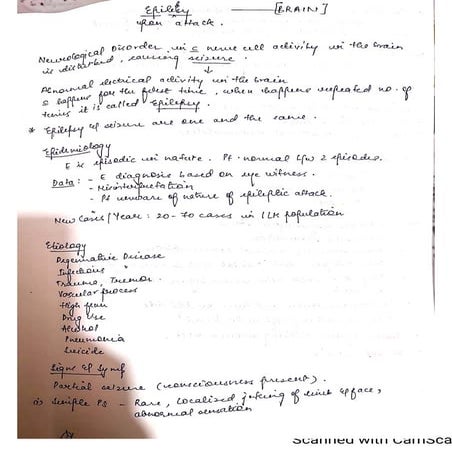 Epilepsy — [BRAIN]
upon attack.
Neurological Disorder in nerve cell activity in the brain
is disturbed, causing seizure.
Abnormal electrical activity in the brain
happens for the first time, when happens repeated no. of
times it is called Epilepsy.
* Epilepsy seizure are one and the same.
Epidemiology
E is episodic in nature. Pt. normal b/w 2 episodes.
Data: - E diagnosis based on eye witness.
- Misinterpretation
- Pt unaware of nature of epileptic attack.
New Cases/Year: 20-70 cases in 1 LK population
Etiology
Degenerative Disease
Infectious
Trauma, Tremor
Vascular process
High fever
Drug Use
Alcohol
Pneumonia
Suicide
Signs & Symp
Partial seizure (consciousness present).
Simple PS - Rare, Localized jerking of limb face,
abnormal sensation
Scanned with CamSca